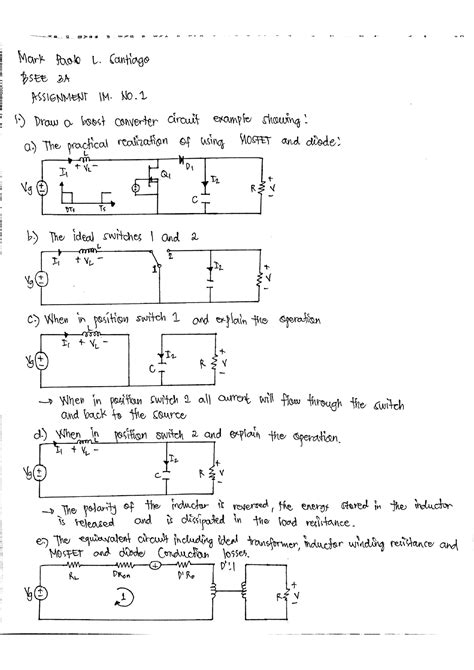 Mark Paolo L. Santiago
BSEE 3A
ASSIGNMENT IM. NO. 1
1.) Draw a boost converter circuit example showing:
a.) The practical realization of using MOSFET and diode:
L
I1 + VL -
Q1
D1
I2
Vg
DTs Ts
C
R
+
V
-
b.) The ideal switches 1 and 2
L
I1 + VL -
1
2
I2
Vg
+
V
-
c.) When in position switch 1 and explain the operation
L
I1 + VL -
Vg
I2
C
R
+
V
-
→ When in position switch 2 all current will flow through the switch
and back to the source
d.) When in position switch 2 and explain the operation.
I1 + VL -
Vg
I2
C
R
+
V
-
→ The polarity of the inductor is reversed, the energy stored in the inductor
is released and is dissipated in the load resistance.
e.) The equivalent circuit including ideal transformer, inductor winding resistance and
MOSFET and diode Conduction losses.
RL
DRon
D'RD
D':1
Vg
1
R
+
V
-